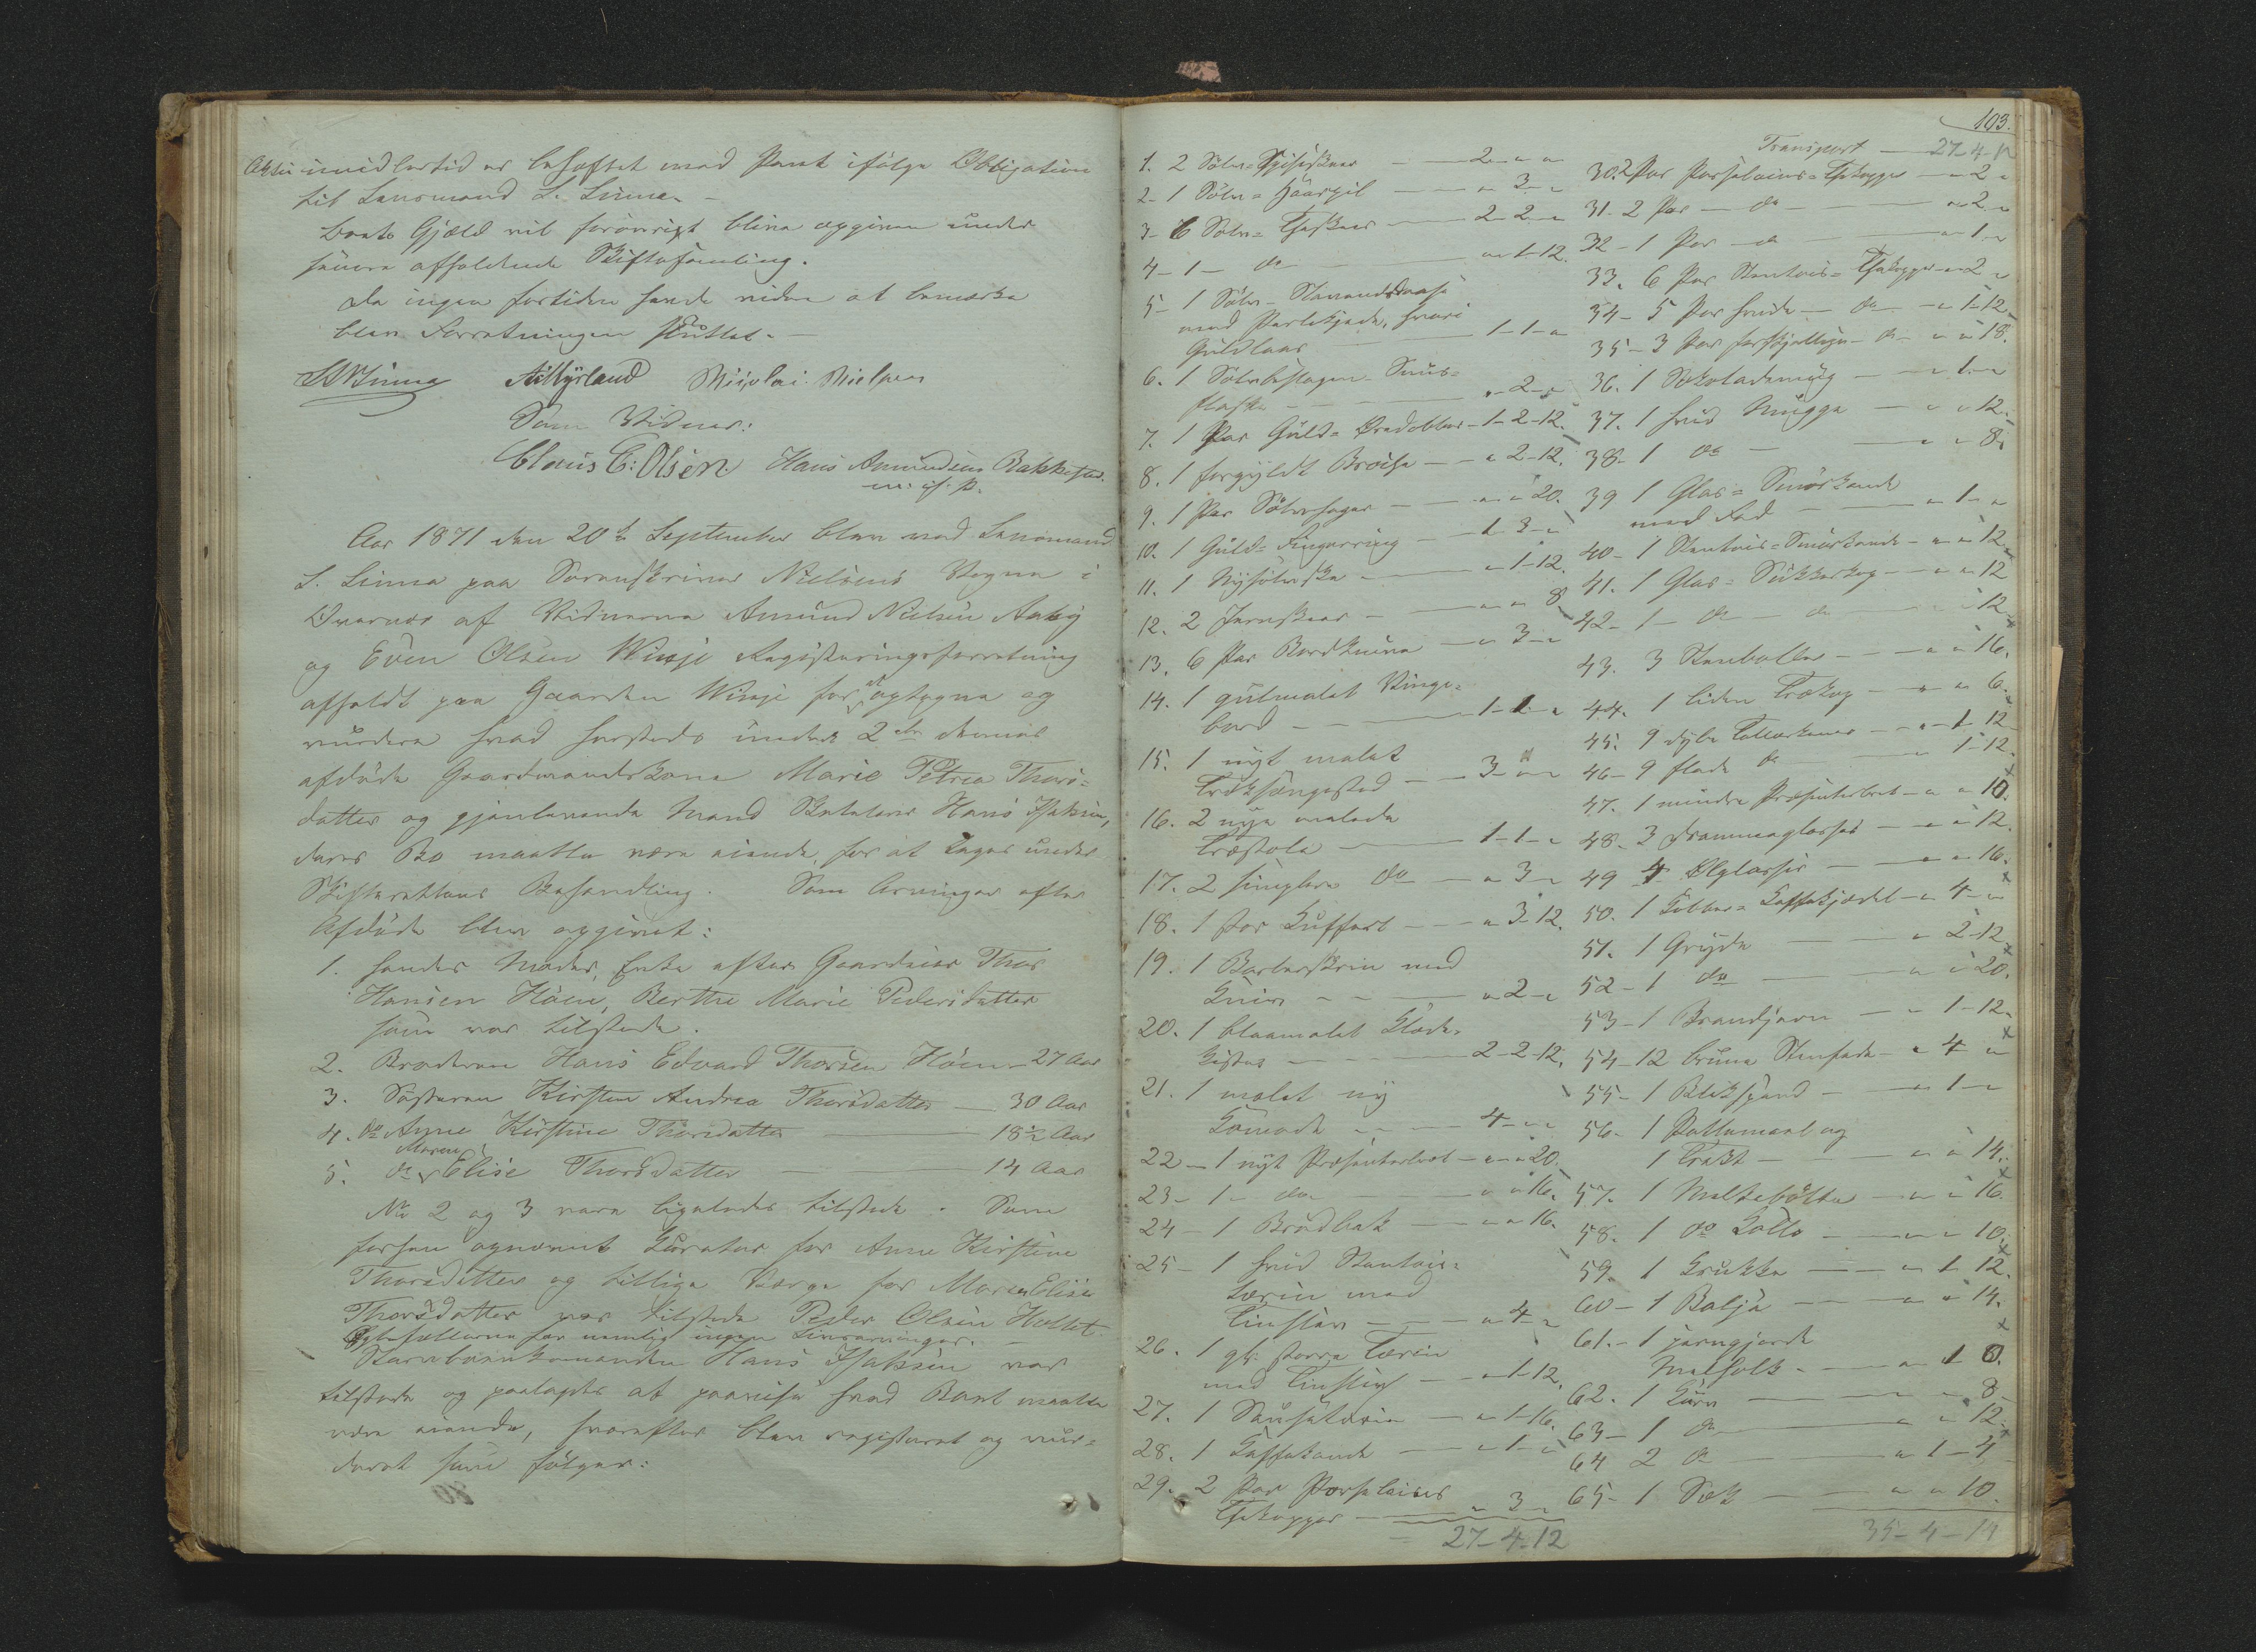 imidlertid er behæftet med Pant ifølge Obligation
til Lensmand L. Linna. –
Boets Gjæld vil forøvrigt blive opgiven under
senere afholdende Skiftesamling.
Da ingen fortiden havde videre at bemærke
blev Forretningen sluttet. –
L Linna A. Myrland Nicolai Nielsen
Som Vidner:
Claus C: Olsen Hans Amundsen Bakke
m. if. P.
Aar 1871 den 20de September blev ved Lensmand
L. Linna paa Sorenskriver Nielsens Vegne i
Overvær af Vidnerne Amund Nielsen Aaby
og Even Olsen Winje Registreringsforretning
afholdt paa Gaarden Winje for at optegne og
vurdere hvad hersteds under 2den dennes
afdøde Gaardmandskone Marie Petrea Thors-
datter og gjenlevende Mand Hans Isaksen,
deres Bo maatte være eiende, for at tages under
Skifterettens Behandling. Som Arvinger efter
Afdøde blev opgivet:
1. hendes Moder, Enke efter Gaardeier Thor
Hansen Höen, Berthe Marie Pedersdatter
som var tilstede.
2. Broderen Hans Edvard Thorsen Höen – 27 Aar
3. Søsteren Kirsten Andrea Thorsdatter – 30 Aar
4. do Anne Kirstine Thorsdatter – 18½ Aar
5. do Maren Elise Thorsdatter – 14 Aar
No 2 og 3 vare ligeledes tilstede. Som
forhen opnævnt Curator for Anne Kirstine
Thorsdatter og tillige Værge for Maren Elise
Thorsdatter var tilstede Peder Olsen Holtet.
Ægtefællerne har nemlig ingen Livsarvinger. –
Hans Isaksen var
tilstede og paalagdes at paavise hvad Boet maatte
være eiende, hvorefter blev registreret og vur-
deret som følger:
103.
1. 2 Sølv-Spiseskeer – 2 – " – "
2 – 1 Sølv-Haarpil – " – 3 – "
3 – 6 Sølv-Theskeer – 2 – 2 – "
4 – 1 – do – " – 1 – 12.
5 – 1 Sølv-
med Perlekjæde, hvori
Guldlaas – 1 – 1 – "
6. 1 Sølvbeslagen Snus-
flaske – " – 2 – "
7. 1 Par Guld-Øredobber – 1 – 2 – 12.
8. 1 forgyldt Broche – " – 2 – 12.
9. 1 Par Sølvhager – " – " – 20.
10. 1 Guld-Fingerring – 1 – 3 – "
11. 1 Nysølvske – " – 1 – 12.
12. 2 Jernskeer – " – " – 8
13. 6 Par Bordknive – " – 3 – "
14. 1 gulmalet Vinge-
bord – 1 – 1 – "
15. 1 nyt malet
Træksengested – 3 – " – "
16. 2 nye malede
Træstole – 1 – 1 – "
17. 2 simplere do – " – 3 – "
18. 1 stor Kuffert – " – 3 – 12.
19. 1 Barberskrin med
Kniv – " – 2 – "
20. 1 blaamalet Klæde-
kiste – 2 – 2 – 12.
21. 1 malet ny
Komode – 4 – " – "
22 – 1 nyt Præsenterbret – " – " – 20.
23 – 1 – do – " – " – 16.
24 – 1 Brødbak – " – " – 16.
25 – 1 hvid Stentøis-
Terin med
– " – 4 – "
26. 1 gl. større Terin
med – " – 1 – 12.
27. 1 Sauseterin – " – 1 – 16.
28. 1 Kaffekande – " – 1 – "
29. 2 Par Porselains
Thekopper – " – 3 – "
27 – 4 – 12
Transport – 27 – 4 – 12
30. 2 Par Porselains-Thekopper – " – 2 – "
31. 2 Par – do – " – 2 – "
32 – 1 Par – do – " – 1 – "
33. 6 Par Stentøis-Thekopper – " – 2 – "
34 – 5 Par hvide – do – " – 1 – 12.
35 – 3 Par forskjellige – do – " – " – 18.
36. 1 Sokolademug – " – 1 – "
37. 1 hvid Mugge – " – " – 12.
38 – 1 do – " – " – 8.
39 1 Glas-Smørkande
med Fad – " – 1 – "
40 – 1 Stentøis-Smørkande – " – " – 12.
41. 1 Glas-Sukkerkop – " – " – 12
42 – 1 – do – do – " – " – 12
43. 3 Stenboller – " – " – 16.
44. 1 liden Trækop – " – " – 6.
45. 9 dybe Tallerkener – " – 1 – 12
46 – 9 flade do – " – 1 – 12.
47. 1 mindre Præsenterbret – " – " – 10.
48 – 3 Drammeglasser – " – " – 12.
49 4 Ølglasser – " – " – 16.
50. 1 Kobber-Kaffekjedel – " – 4 – "
51. 1 Gryde – " – 2 – 12
52 – 1 do – " – " – 20.
53 – 1 Brandjern – " – 1 – 12.
54 – 12 brune Stenfade – " – 4 – "
55 – 1 Blikspand – " – 1 – "
56 – 1 Pottemaal og
1 Trakt – " – " – 14.
57. 1 Meltebøtte – " – " – 16.
58. 1 do Kolle – " – " – 10.
59. 1 Krukke – " – 1 – 12.
60 – 1 Balje – " – " – 14.
61. – 1 jerngjordt
Melkolk – " – 1 – 8.
62. 1 Kurv – " – " – 8
63 – 1 do – " – " – 12.
64 2 do – " – 1 – 4
65 – 1 Sæk – " – " – 10.
35 – 4 – 14